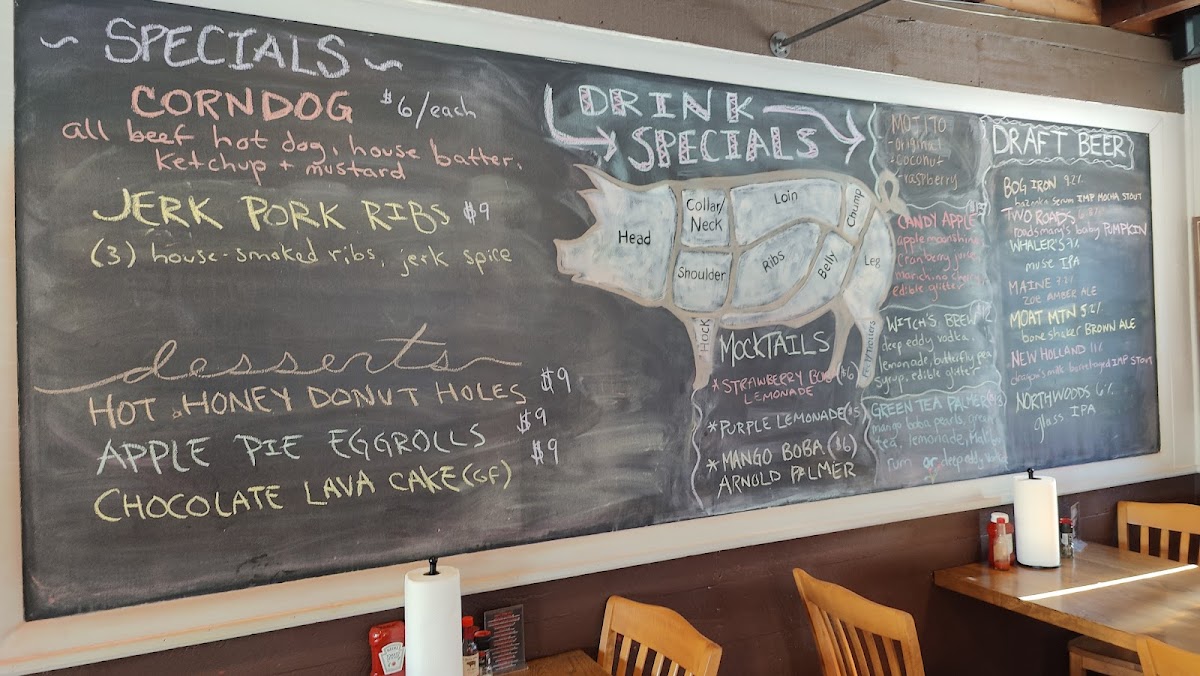 ~ SPECIALS ~
CORNDOG $6/each
all beef hot dog, house batter,
ketchup + mustard
JERK PORK RIBS $9
(3) house-smoked ribs, jerk spice
desserts
HOT HONEY DONUT HOLES $9
APPLE PIE EGGROLLS $9
CHOCOLATE LAVA CAKE (GF) $9
DRINK
SPECIALS
Head
Collar/
Neck
Loin
Chump
Shoulder
Ribs
Belly
Leg
HOCK
MOCKTAILS
* STRAWBERRY BOBA ($6)
LEMONADE
* PURPLE LEMONADE ($5)
* MANGO BOBA ($6)
ARNOLD PALMER
MOJITO
- original
- coconut
- raspberry
CANDY APPLE
apple moonshine
cranberry juice
cherry
edible glitter
WITCH'S BREW
deep eddy vodka,
lemonade, butterfly pea
syrup, edible glitter
GREEN TEA PALMER
mango boba pearls, green
tea, lemonade,
rum or deep eddy
DRAFT BEER
BOG IRON 9.2%
IMP MOCHA STOUT
TWO ROADS
roadsmary's baby PUMPKIN
WHALER'S
muse IPA
MAINE
ZOE AMBER ALE
MOAT MTN 5.2%
bone shaker BROWN ALE
NEW HOLLAND 11%
dragon's milk IMP STOUT
NORTHWOODS 6%
glass IPA